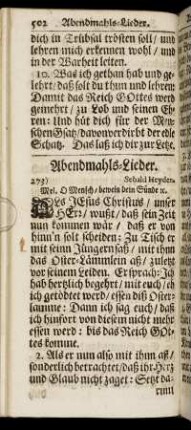 502 Abendmahls-Lieder.
dich in Trübsal trösten soll/ und
lehren mich erkennen wohl/ und
in der Warheit leiten.
10. Was ich gethan hab und ge-
lehrt/ daß solt du thun und lehren:
Damit das Reich GOttes werd
gemehrt/ zu Lob und seinen Eh-
ren: Und hüt dich für der Men-
schen Gsatz/ davon verdirbt der edle
Schatz. Das laß ich dir zur Letze.
Abendmahls-Lieder.
273) Sebald Heyden.
Mel. O Mensch/ bewein dein Sünde ꝛc.
ALs JEsus Christus/ unser
HErr/ wußt/ daß sein Zeit
nun kommen wär / daß er von
hinn'n solt scheiden: Zu Tisch er
mit seinn Jüngern saß/ mit ihnn
das Oster-Lämmlein aß/ zuletzt
vor seinem Leiden. Er sprach: Ich
hab hertzlich begehrt/ mit euch/ eh
ich getödtet werd/ essen diß Oster-
lamme: Dann ich sag euch/ daß
ich hinfort von diesem nicht mehr
essen werd: bis das Reich GOt-
tes komme.
2. Als er nun also mit ihnn aß/
sonderlich betrachtet/ daß ihr Hertz
und Glaub nicht zaget: Setzt da-
rinn